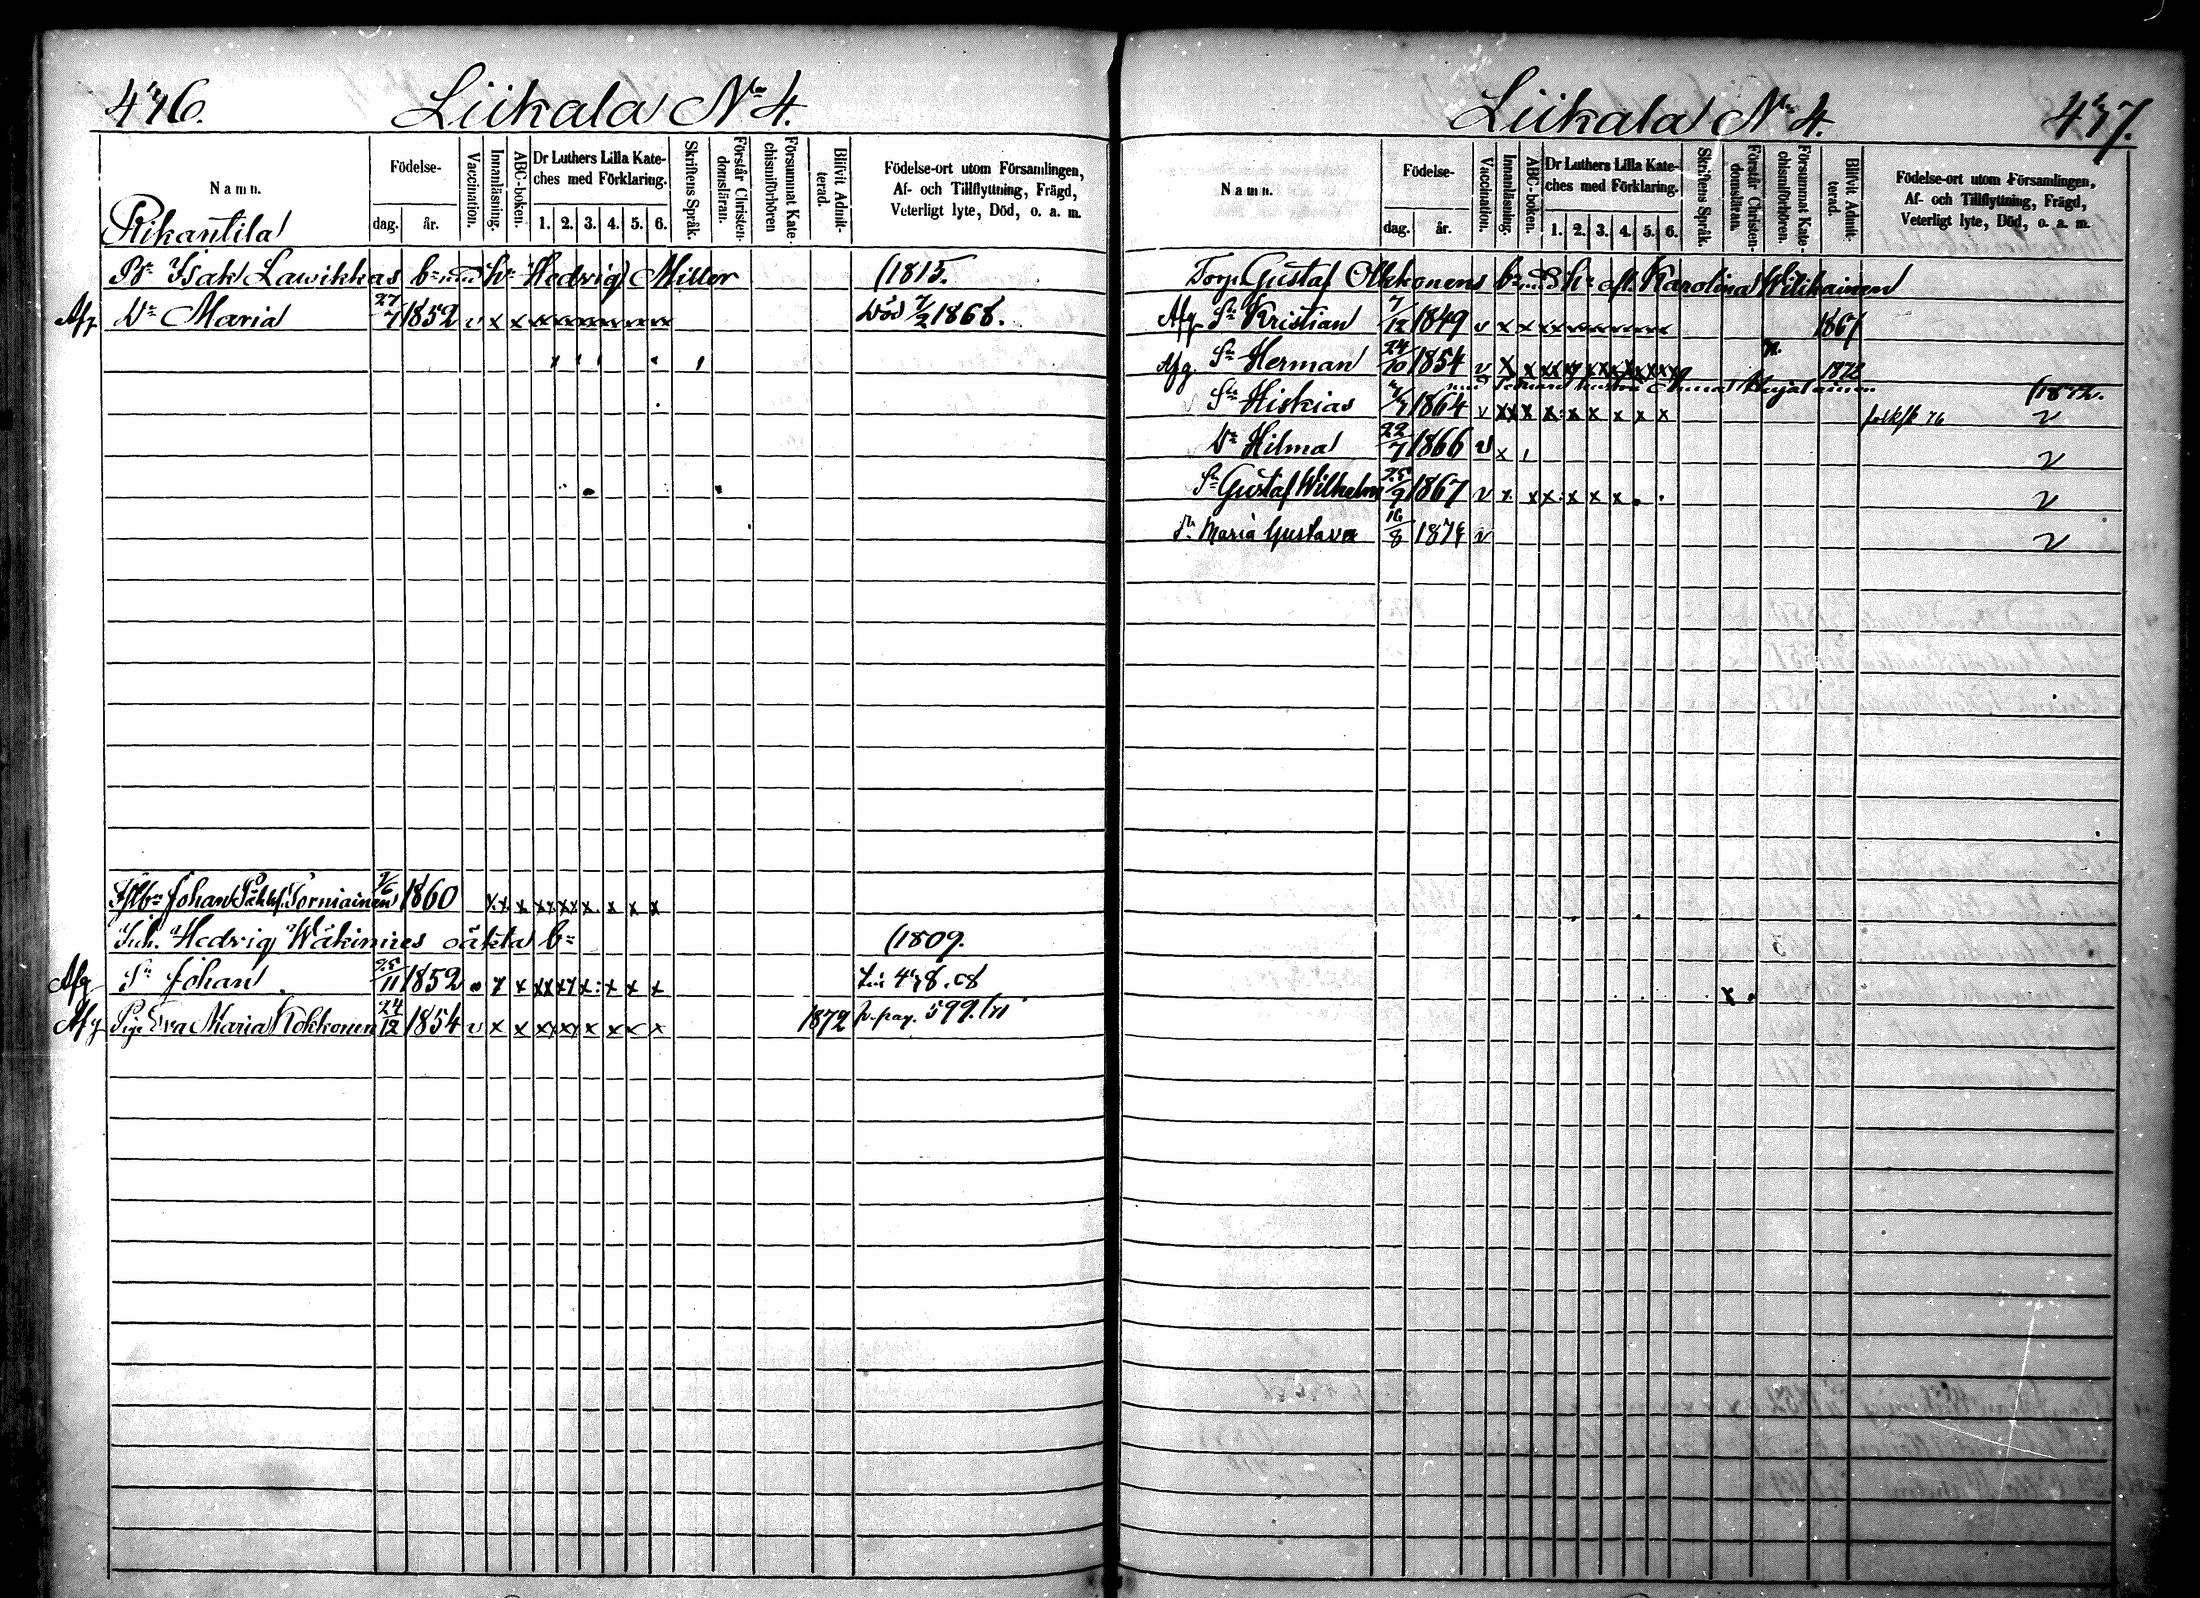 476. Liikala No 4.
Namn.
Födelse-
dag. år.
Vaccination.
Innanläsning.
ABC-boken.
Dr Luthers Lilla Kate-
ches med Förklaring.
1. 2. 3. 4. 5. 6.
Skriftens Språk.
Förstår Christen-
domsläran.
Försummat Kate-
chismiförhören
Blifvit Admit-
terad.
Födelse-ort utom Församlingen,
Af- och Tillflyttning, Frägd,
Veterligt lyte, Död, o. a. m.
Rikantila
Bn Isak Lawikkas bn med h: Hedvig Miller (1815.
Afg Dr Maria 27/7 1852 v x x död 7/2 1868.
Johan Torniainen 7/6 1860 x x x
Inh. Hedvig Wäkiwäes oäkta bn (1809.
Afg Sn Johan 25/11 1852 x x x x: x x x 478.68
Afg Pig. Eva Maria Kokkonen 24/12 1854 v x x x x x x x x 1872 599.
Liikala No 4. 477.
Namn.
Födelse-
dag. år.
Vaccination.
Innanläsning.
ABC-boken.
Dr Luthers Lilla Kate-
ches med Förklaring.
1. 2. 3. 4. 5. 6.
Skriftens Språk.
Förstår Christen-
domsläran.
Försummat Kate-
chismiförhören.
Blifvit Admit-
terad.
Födelse-ort utom Församlingen,
Af- och Tillflyttning, Frägd,
Veterligt lyte, Död, o. a. m.
Torp. Gustaf Okkonens bn med h: Karolina
Afg Sn Kristian 7/12 1849 v x x x x 1867
Afg. Sn Herman 24/10 1854 v x x 1872
med (1872.
Sn Hiskias 1864 v xx x x x x x x x folksk 76 v
Dr Hilma 22/7 1866 v x v
Sn Gustaf Wilhelm 25/9 1867 v x x x x x x v
Maria Gustava 16/8 1871 v v